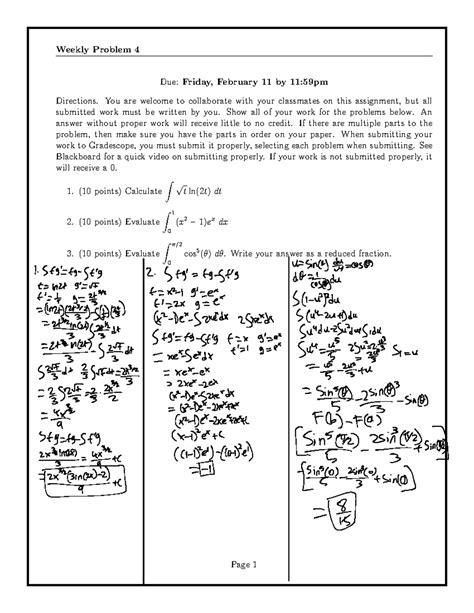 Weekly Problem 4
Due: Friday, February 11 by 11:59pm
Directions. You are welcome to collaborate with your classmates on this assignment, but all
submitted work must be written by you. Show all of your work for the problems below. An
answer without proper work will receive little to no credit. If there are multiple parts to the
problem, then make sure you have the parts in order on your paper. When submitting your
work to Gradescope, you must submit it properly, selecting each problem when submitting. See
Blackboard for a quick video on submitting properly. If your work is not submitted properly, it
will receive a 0.
1. (10 points) Calculate ∫ √t ln(2t) dt
2. (10 points) Evaluate ∫₀¹ (x² − 1)eˣ dx
3. (10 points) Evaluate ∫₀^{π/2} cos⁵(θ) dθ. Write your answer as a reduced fraction.
1. ∫fg'=fg-∫f'g
= 4x^{3/2}/9
∫fg'=fg-∫f'g
2. ∫fg'=fg-∫f'g
f=x²-1 g'=eˣ
f'=2x g=eˣ
(x²-1)eˣ-∫2xeˣdx 2∫xeˣdx
∫fg'=fg-∫f'g f=x g'=eˣ
f'=1 g=eˣ
= xeˣ-∫eˣdx
= xeˣ-eˣ
= 2xeˣ-2eˣ
(x²-1)eˣ-∫2xeˣdx
(x-1)²eˣ+C
= -1
u=sin(θ) du/dθ=cos(θ)
∫(1-u²)²du
∫(u⁴-2u²+1)du
∫u⁴du-∫2u²du+∫1du
F(b)-F(a)
= 8/15
Page 1